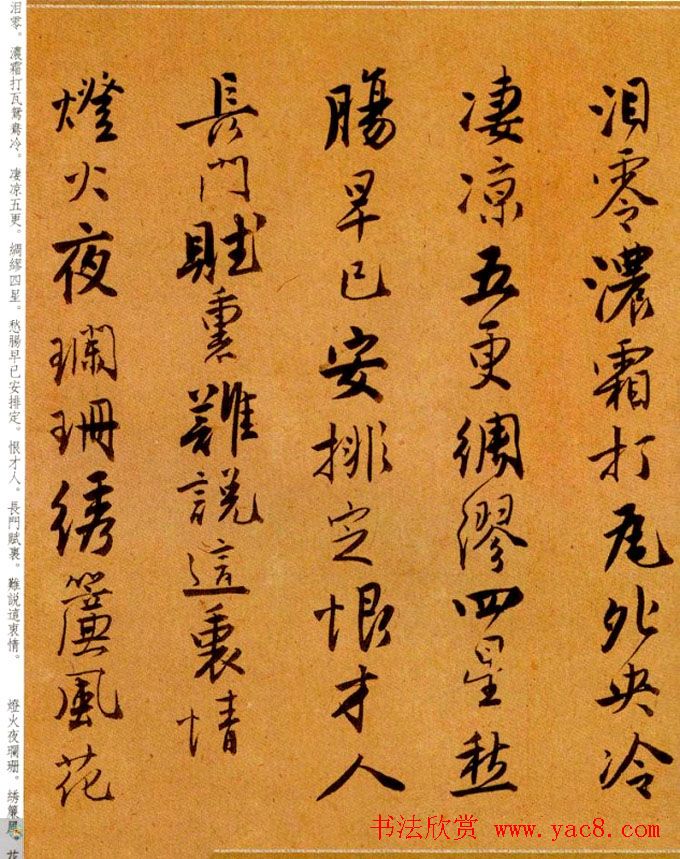 泪零濃霜打瓦夗央冷
凄凉五更綢繆四星愁
腸早已安排定恨才人
長門賦裏難說這衷情
燈火夜瓓珊綉簾風花
泪零。濃霜打瓦鴛鴦冷。凄凉五更。綢繆四星。愁腸早已安排定。恨才人。長門賦裏。難説這衷情。　燈火夜瓓珊。綉簾風。花
书法欣赏 www.yac8.com